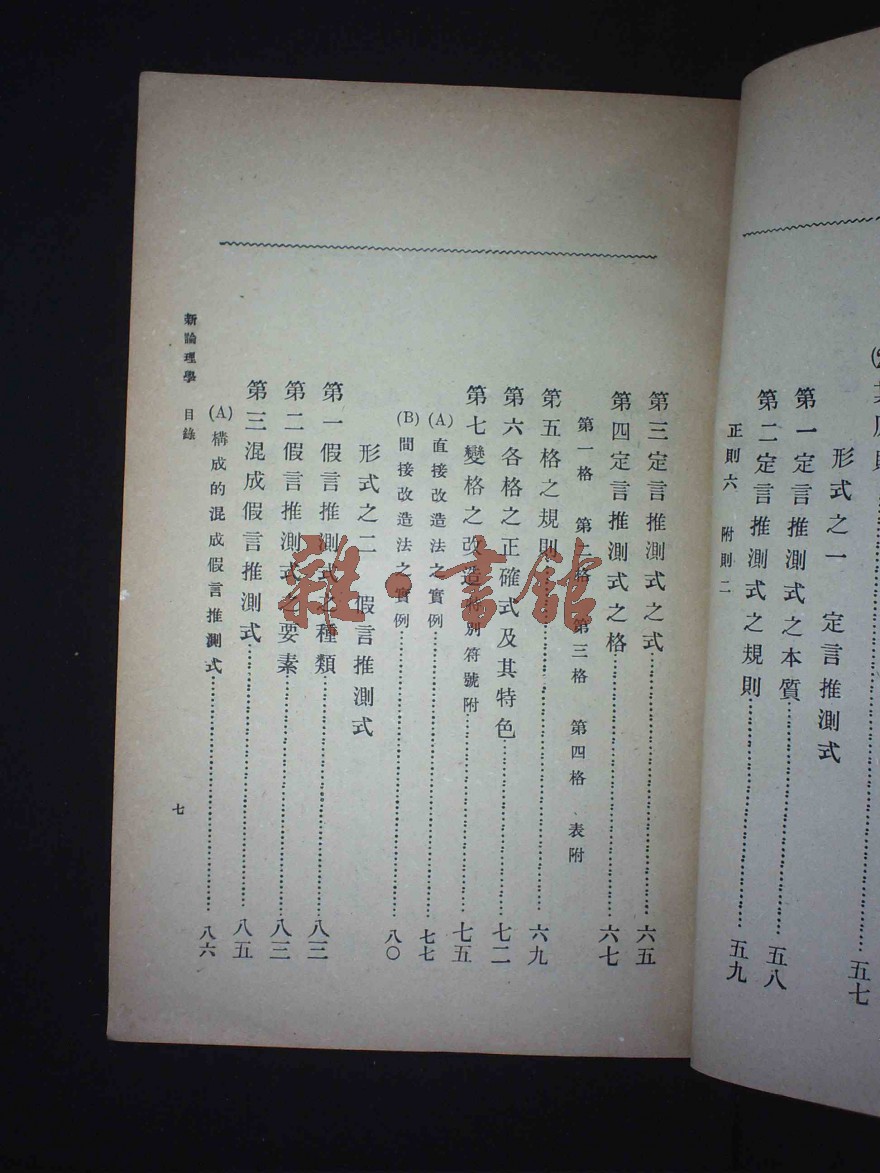 形式之一 定言推測式
第一定言推測式之本質……五八
第二定言推測式之規則……五九
正則六 附則二
五七
第三定言推測式之式……六五
第四定言推測式之格……六七
第一格 第二格 第三格 第四格 表附
第五格之規則……六九
第六各格之正確式及其特色……七二
第七變格之改造特別符號附……七五
(A)直接改造法之實例……七七
(B)間接改造法之實例……八〇
形式之二 假言推測式
第一假言推測式之種類……八三
第二假言推測式之要素……八三
第三混成假言推測式……八五
(A)構成的混成假言推測式……八六
新論理學 目錄
七
雜·書館